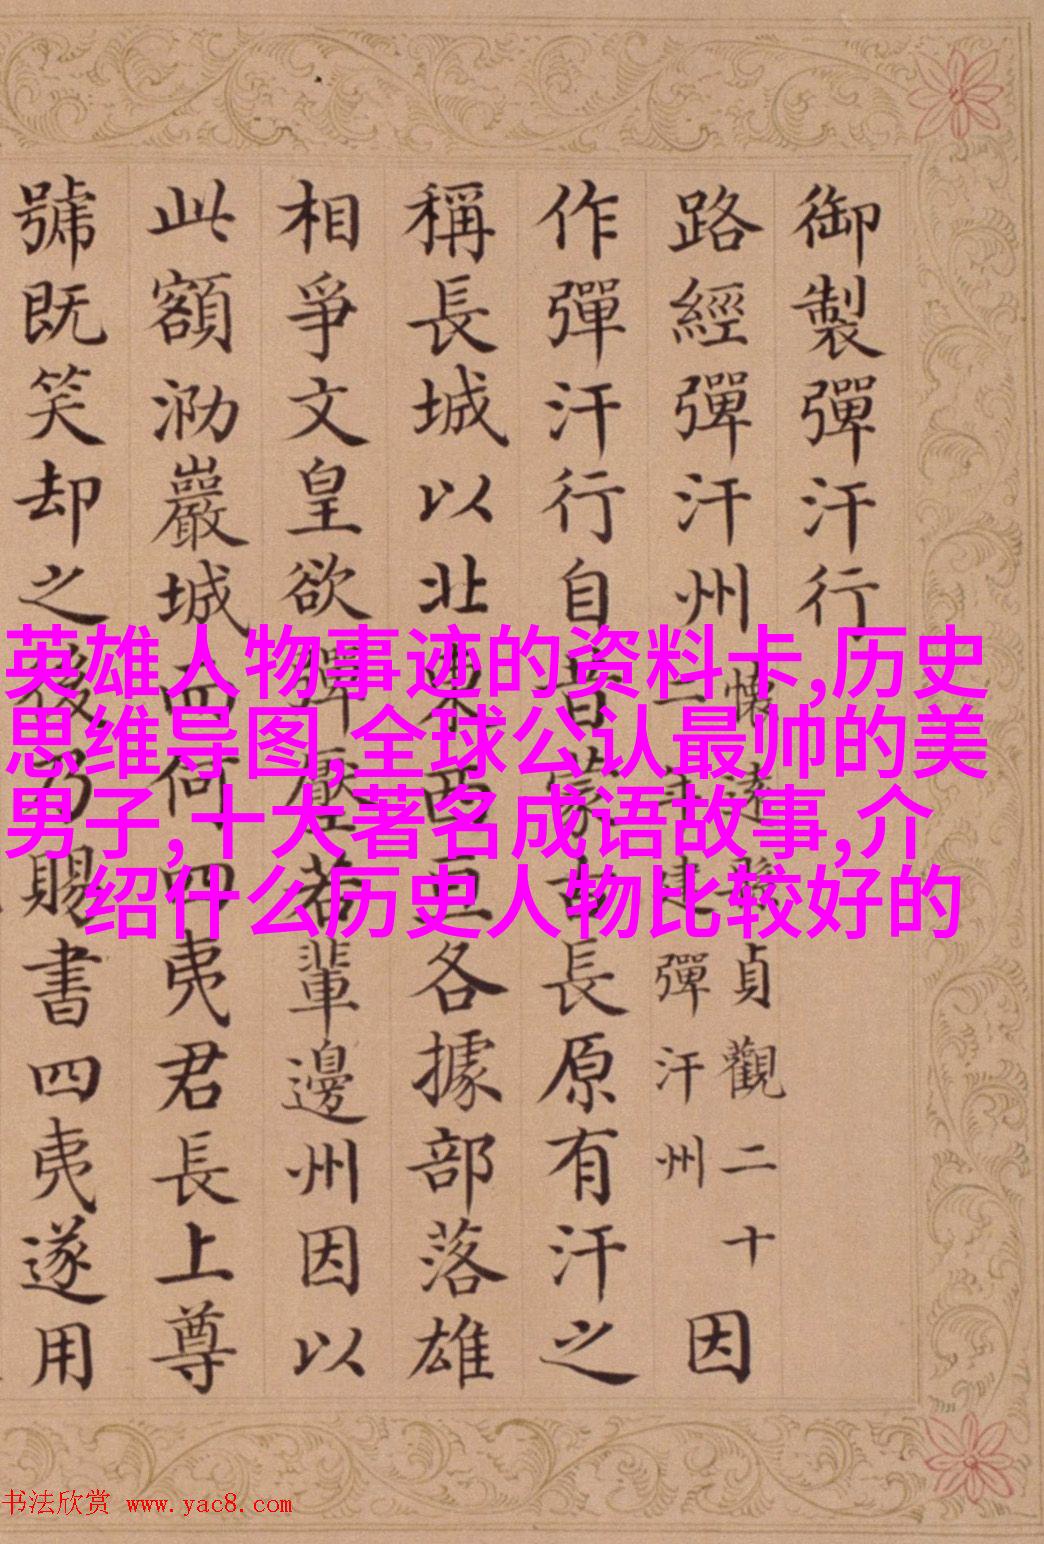 御製彈汗行
路經彈汗州
懷遠貞觀二十
二年建彈汗州
因
作彈汗行自昔蒙古長原有汗之
稱長城以北東西亘各據部落雄
相爭文皇欲彈壓若輩邊州因以
此額泐巖城而何四夷君長上尊
號既笑却之後乃賜書四夷遂用
英雄人物事迹的资料卡,历史
思维导图,全球公认最帅的美
男子,十大著名成语故事,介
绍什么历史人物比较好的
书法欣赏 www.yac8.com